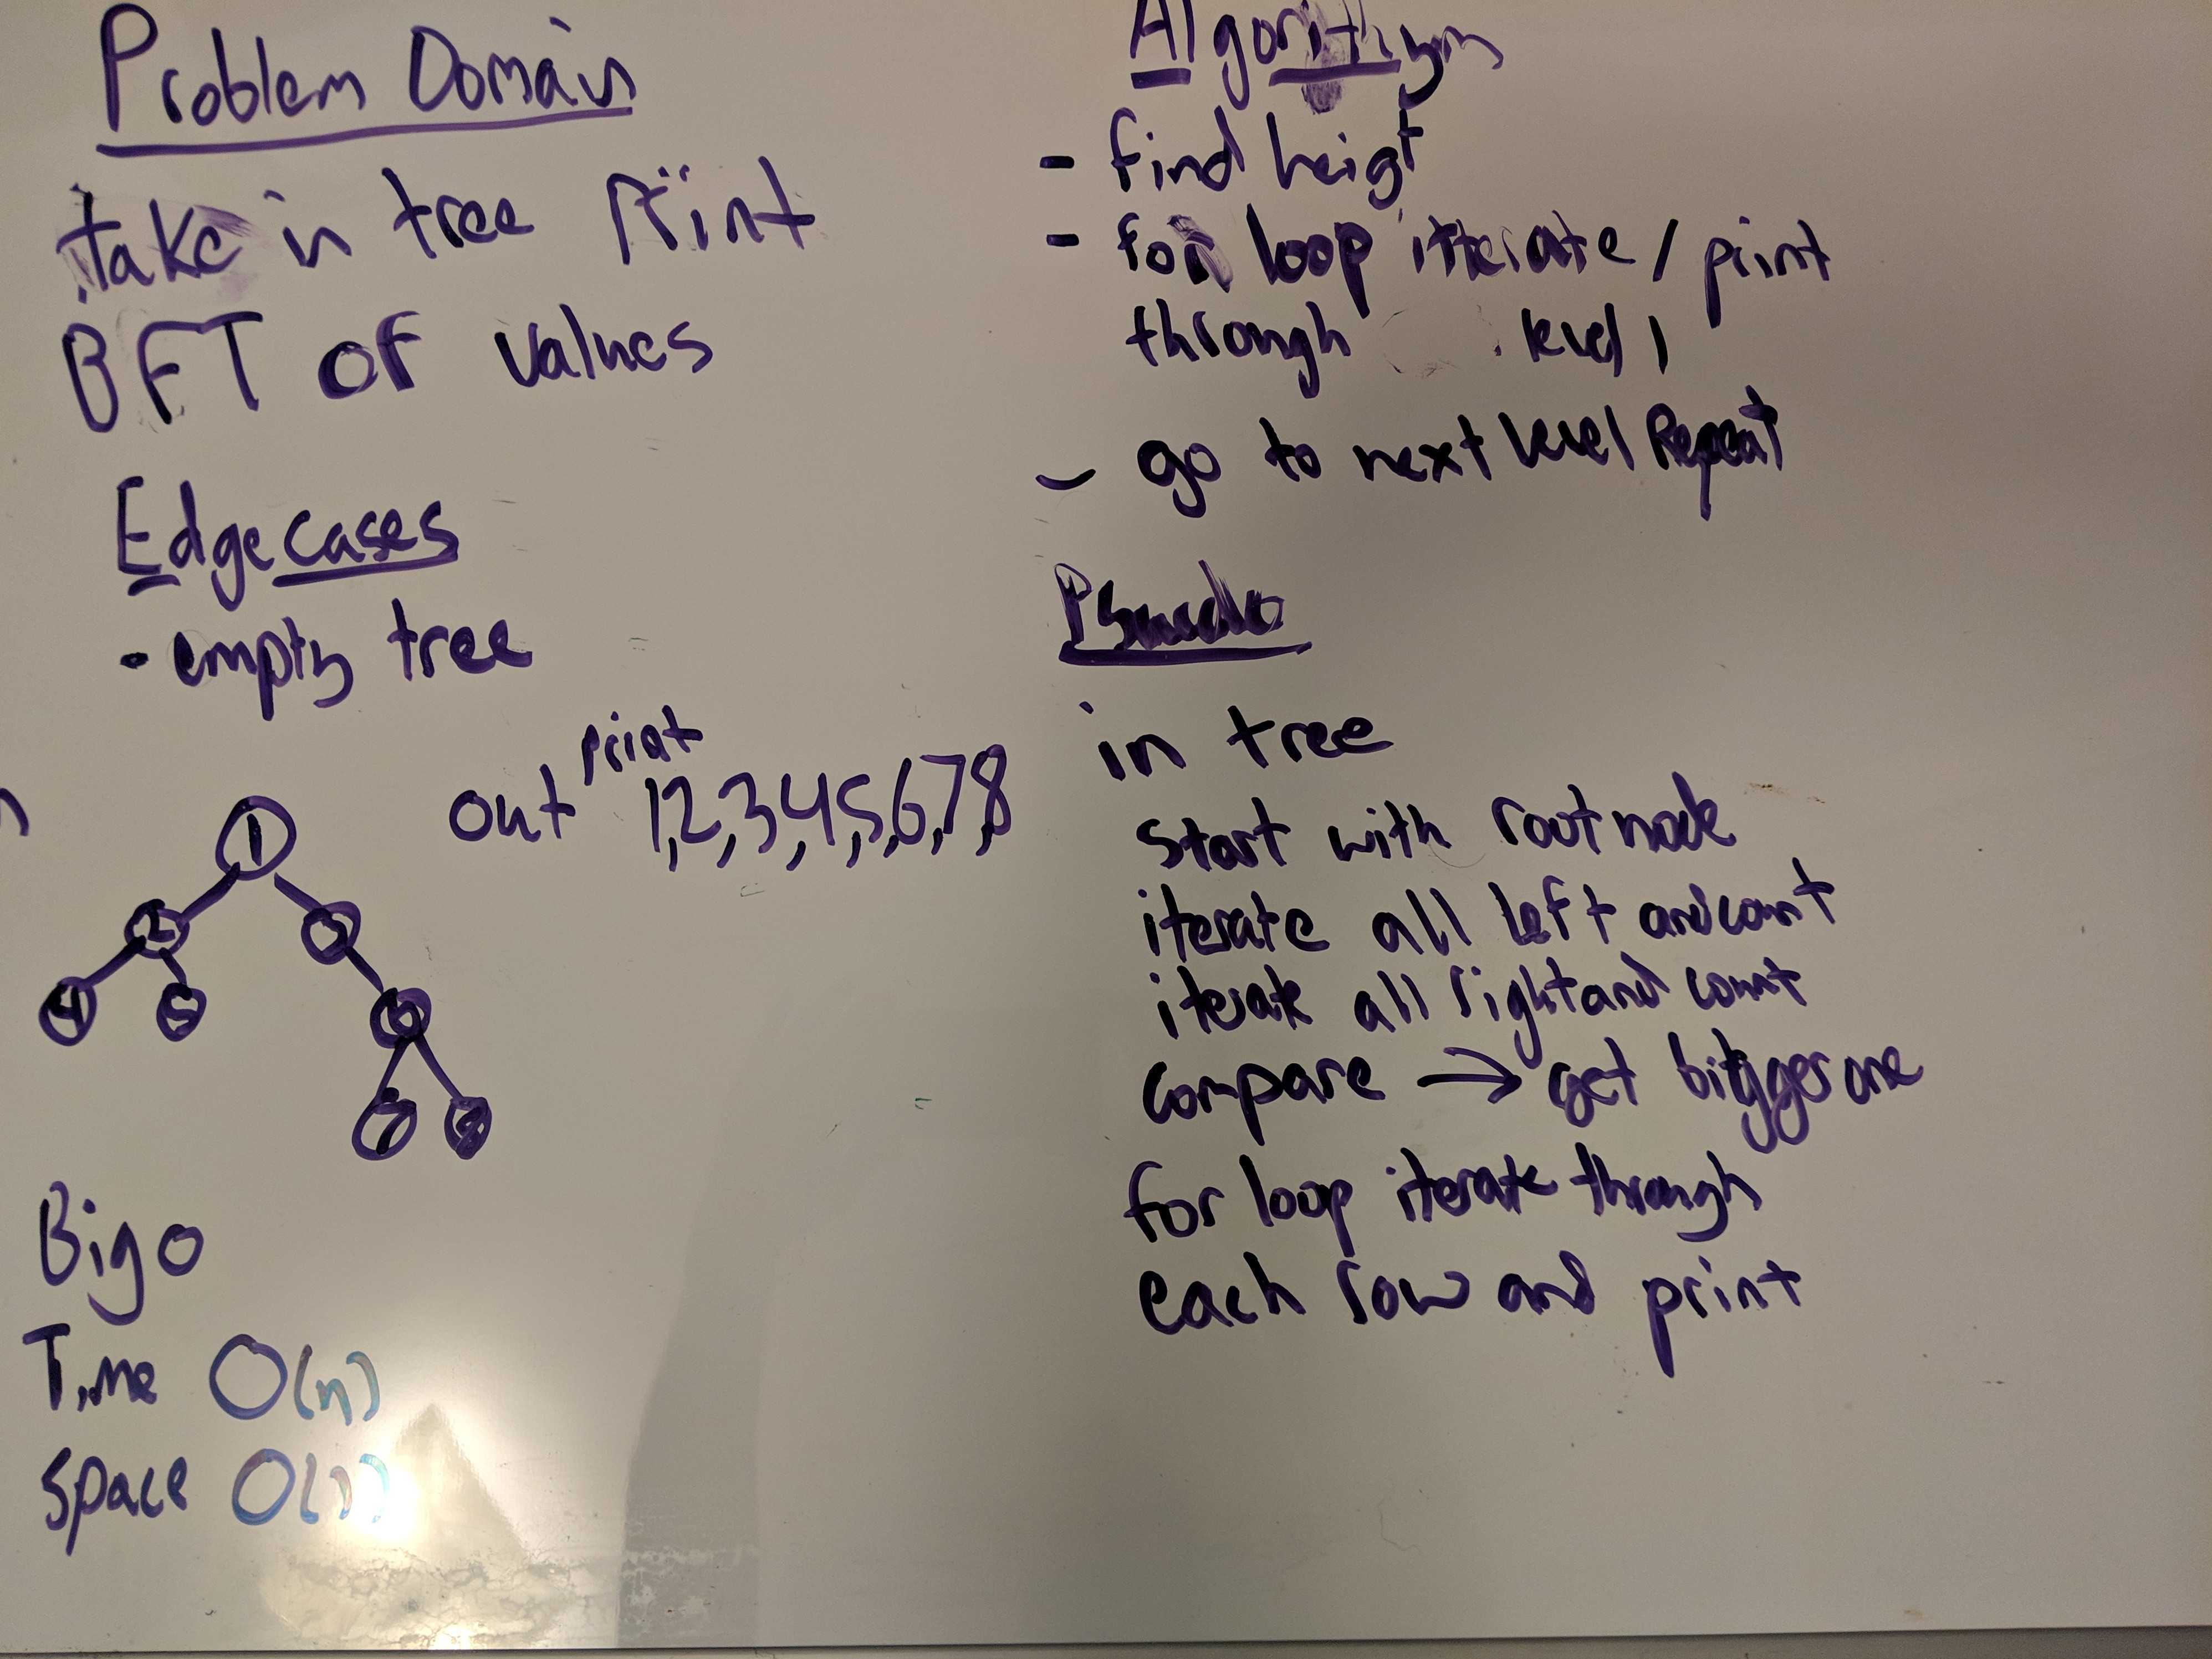 Problem Domain
take in tree Print
BFT of values
Edge cases
- empty tree
print
out 1,2,3,4,5,6,7,8
1
2
3
4
5
6
7
Big o
Time O(n)
Space O(
Algorithym
- find heigt
- for loop itterate / print
through level 1
- go to next level Repeat
Psuedo
in tree
start with root node
iterate all left and count
iterate all right and count
compare → get bigger one
for loop iterate through
each row and print